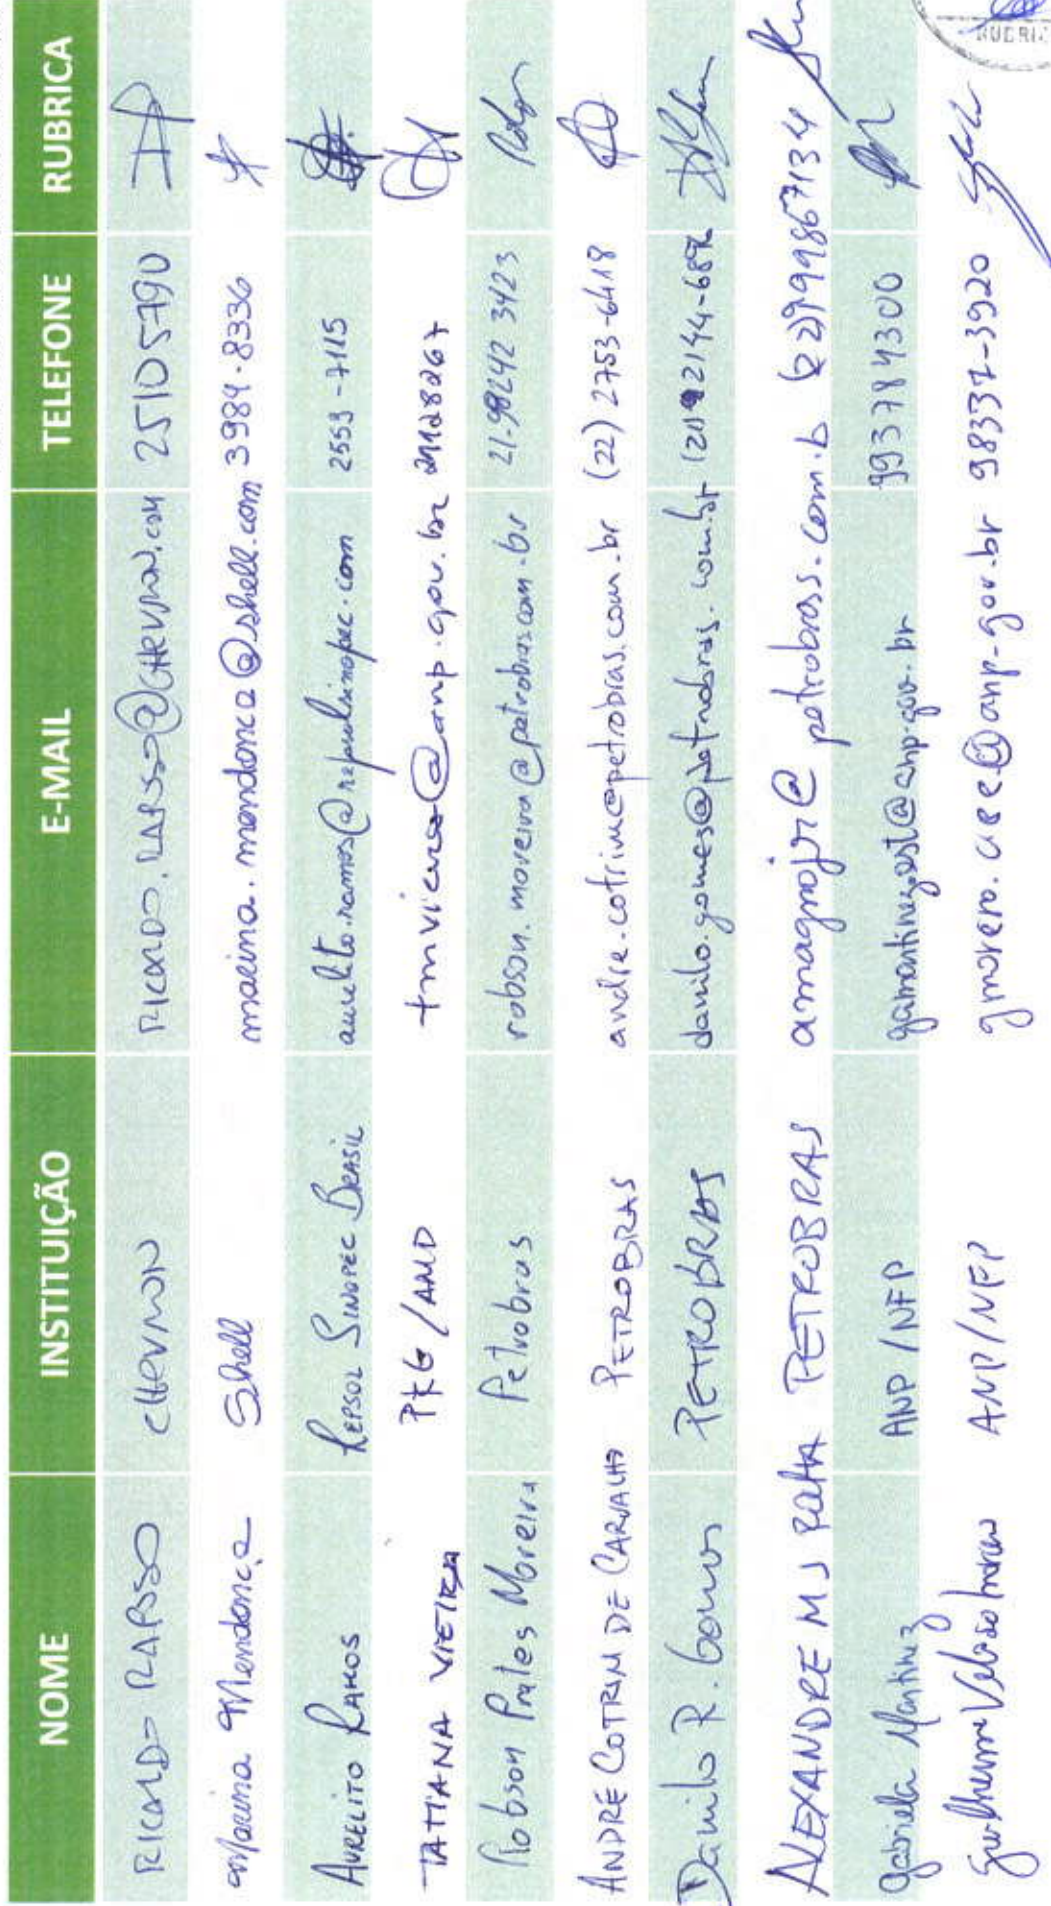 NOME INSTITUIÇÃO E-MAIL TELEFONE RUBRICA
RICARDO RAPOSO CHEVRON RICARDO.RAPOSO@CHEVRON.COM 25105790
Marina Mendonça Shell marina.mendonca@shell.com 3984-8336
AURELITO RAMOS REPSOL SINOPEC BRASIL aurelito.ramos@repsolsinopec.com 2553-7115
TATIANA VIEIRA tmvieira@anp.gov.br 21128267
Robson Prates Moreira Petrobras robson.moreira@petrobras.com.br 21-98242 3423
ANDRE COTRIM DE CARVALHO PETROBRAS andre.cotrim@petrobras.com.br (22) 2753-6418
Danilo R. Gomes PETROBRAS danilo.gomes@petrobras.com.br
ALEXANDRE M J PETROBRAS (22)999867134
Gabriela Martinez ANP/NFP 993784300
ANP/NFP 98337-3920